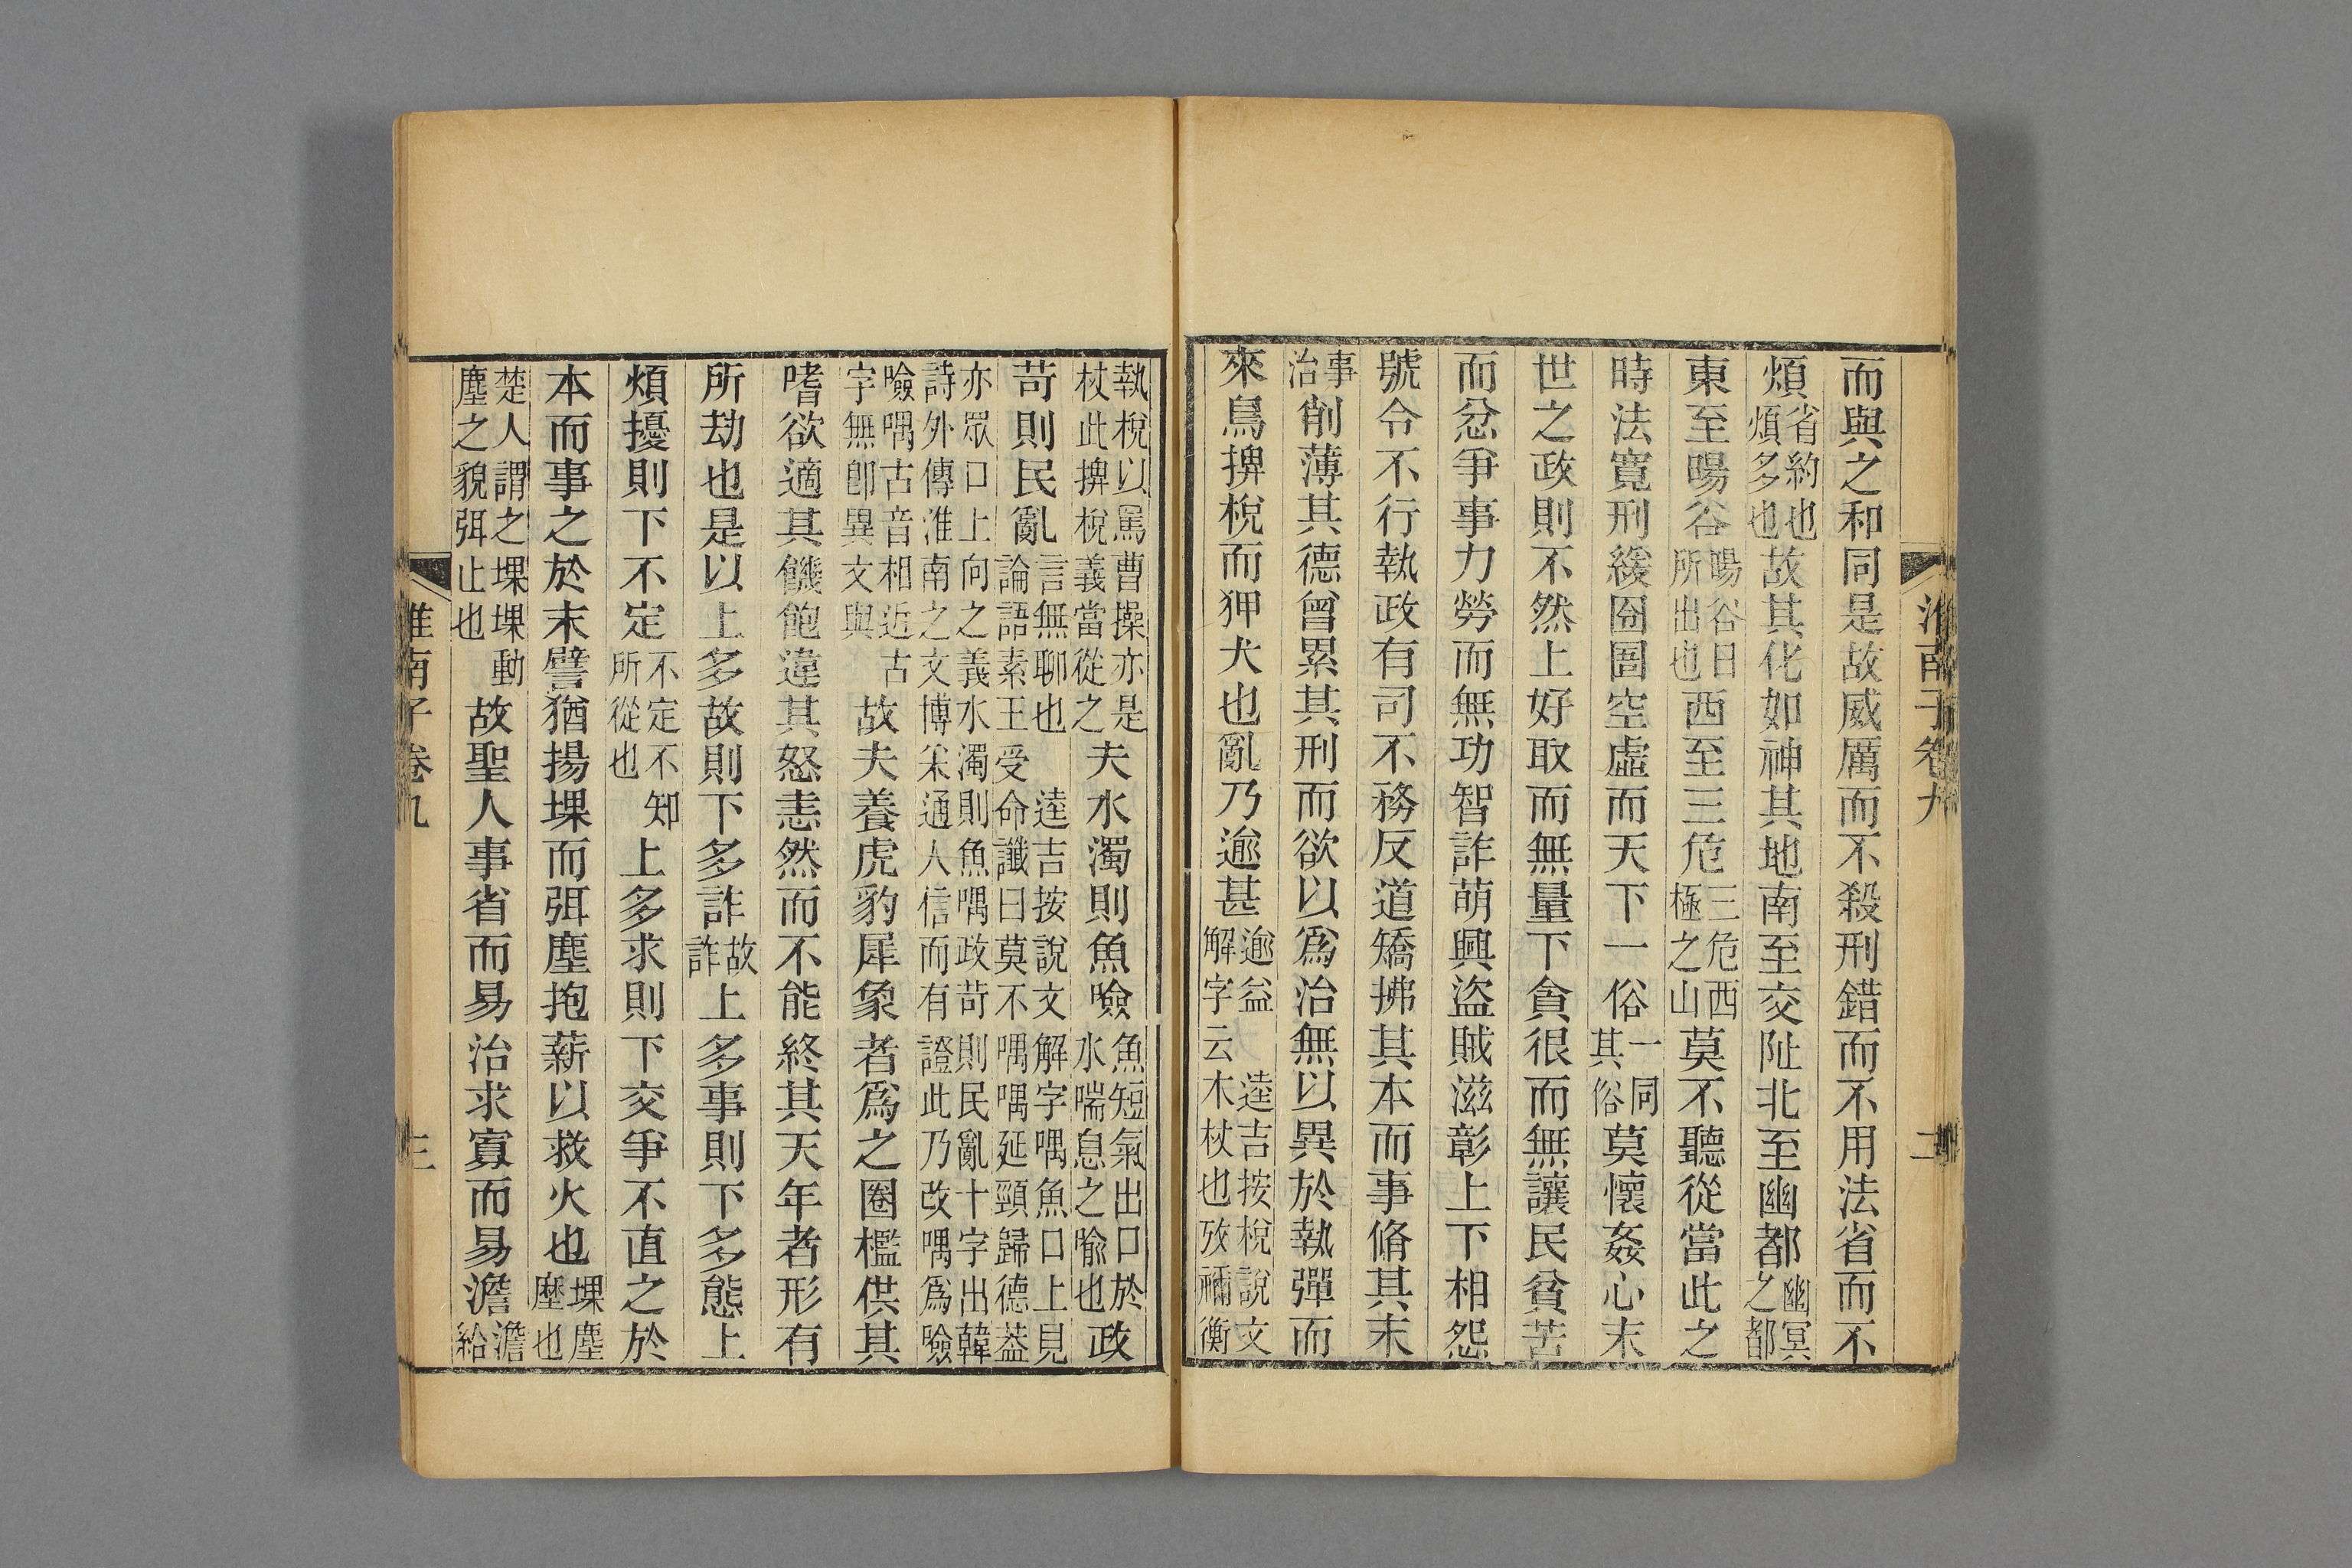 淮南子卷九　二
而與之和同是故威厲而不殺刑錯而不用法省而不
煩省約也煩多也故其化如神其地南至交阯北至幽都幽冥之都
東至暘谷暘谷日所出也西至三危三危西極之山莫不聽從當此之
時法寬刑緩囹圄空虛而天下一俗一同其俗莫懷姦心末
世之政則不然上好取而無量下貪很而無讓民貧苦
而忿爭事力勞而無功智詐萌興盜賊滋彰上下相怨
號令不行執政有司不務反道矯拂其本而事脩其末
事治削薄其德曾累其刑而欲以爲治無以異於執彈而
來鳥捭梲而狎犬也亂乃逾甚逾益　逵吉按梲說文解字云木杖也攷禰衡
執梲以罵曹操亦是杖此捭梲義當從之夫水濁則魚噞魚短氣出口於水喘息之喻也政
苛則民亂言無聊也　逵吉按說文解字喁魚口上見論語素王受命讖曰莫不喁喁延頸歸德葢
亦眾口上向之義水濁則魚喁政苛則民亂十字出韓詩外傳淮南之文博采通人信而有證此乃改喁爲噞
噞喁古音相近古字無卽異文與故夫養虎豹犀象者爲之圈檻供其
嗜欲適其饑飽違其怒恚然而不能終其天年者形有
所劫也是以上多故則下多詐故詐上多事則下多態上
煩擾則下不定不定不知所從也上多求則下交爭不直之於
本而事之於末譬猶揚堁而弭塵抱薪以救火也堁塵塵也
楚人謂之堁堁動塵之貌弭止也故聖人事省而易治求寡而易澹澹給
淮南子卷九　三